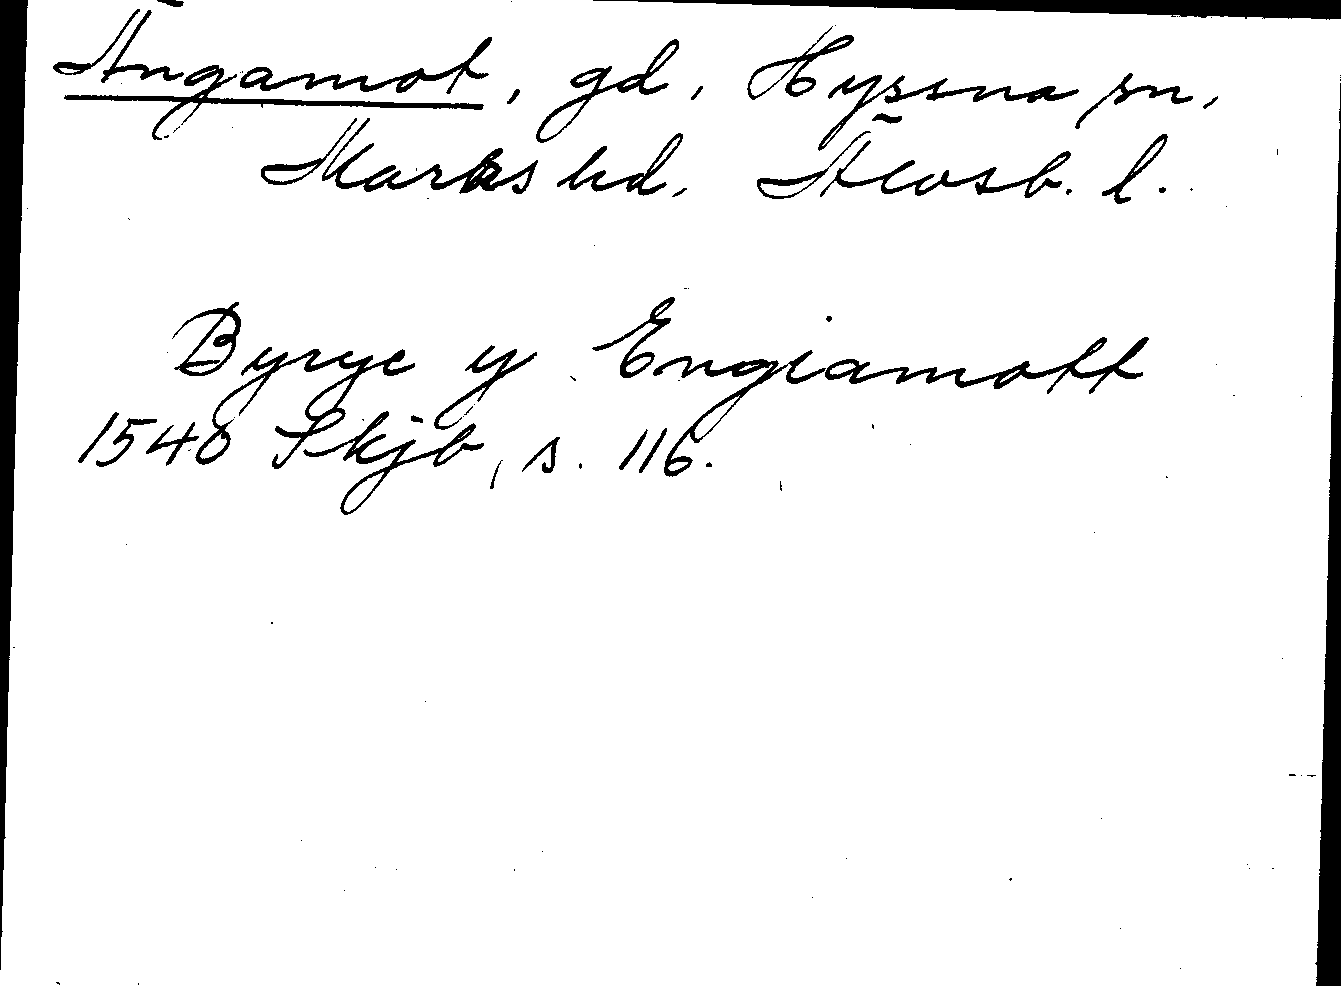 Ängamot, gd, Hyssna sn,
Marks hd, Älvsb. l.
Byrye y Engiamott
1540 Skjb, s. 116.